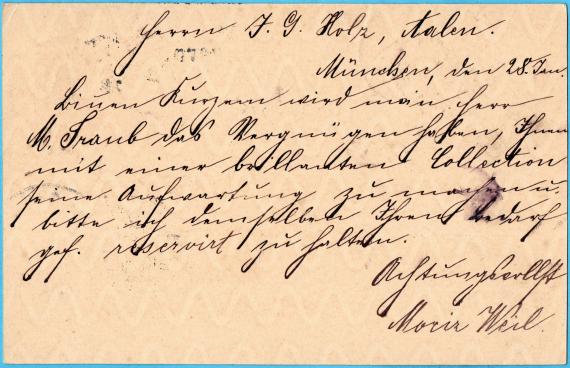 Herrn J. G. Holz, Aalen.
München, den 28. Jan.
Binen Kurzem wird mein Herr
M. Traub das Vergnügen haben, Ihnen
mit einer brillanten Collection
seine Aufwartung zu machen u.
bitte ich demselben Ihren Bedarf
gef. reservirt zu halten.
Achtungsvollst
Weil.